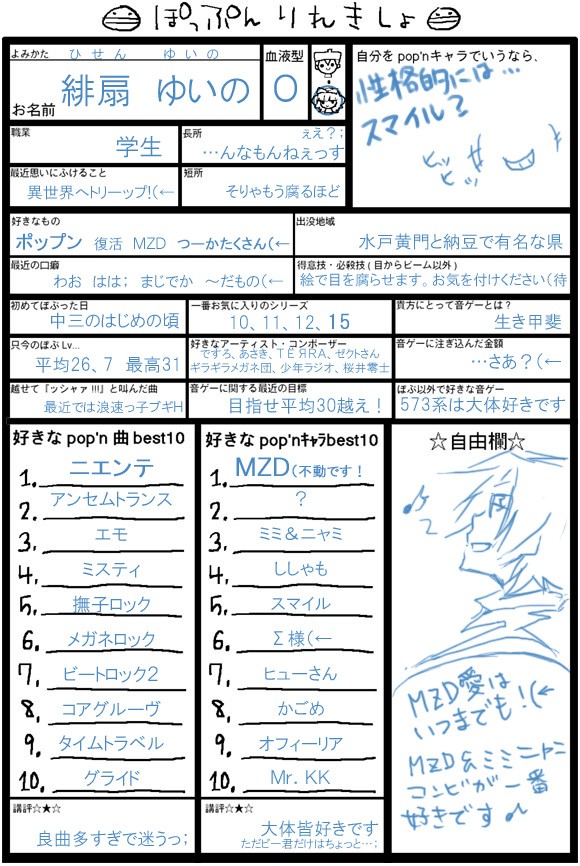 ぽっぷん りれきしょ
よみかた ひせん ゆいの
お名前 緋扇 ゆいの
血液型
O
自分をpop'nキャラでいうなら、
性格的には…
スマイル?
ヒッヒッヒッ
職業
学生
長所 ええ?;
…んなもんねぇっす
最近思いにふけること
異世界へトリーップ!(←
短所
そりゃもう腐るほど
好きなもの
ポップン 復活 MZD つーかたくさん(←
出没地域
水戸黄門と納豆で有名な県
最近の口癖
わお はは; まじでか ～だもの(←
得意技・必殺技(目からビーム以外)
絵で目を腐らせます。お気を付けください(待
初めてぽぷった日
中三のはじめの頃
一番お気に入りのシリーズ
10、11、12、15
貴方にとって音ゲーとは?
生き甲斐
只今のぽぷLv...
平均26、7 最高31
好きなアーティスト・コンポーザー
ですろ、あさき、TЁЯRA、ゼクトさん
ギラギラメガネ団、少年ラジオ、桜井零士
音ゲーに注ぎ込んだ金額
…さあ?(←
越せて『ッシャァ!!!』と叫んだ曲
最近では浪速っ子ブギH
音ゲーに関する最近の目標
目指せ平均30越え!
ぽぷ以外で好きな音ゲー
573系は大体好きです
好きなpop'n 曲best10
1. ニエンテ
2. アンセムトランス
3. エモ
4. ミスティ
5. 撫子ロック
6. メガネロック
7. ビートロック2
8. コアグルーヴ
9. タイムトラベル
10. グライド
講評☆★☆
良曲多すぎで迷うっ;
好きなpop'nキャラbest10
1. MZD(不動です!
2. ?
3. ミミ&ニャミ
4. ししゃも
5. スマイル
6. Σ様(←
7. ヒューさん
8. かごめ
9. オフィーリア
10. Mr. KK
講評☆★☆
大体皆好きです
ただビー君だけはちょっと…;
☆自由欄☆
♪
MZD愛は
いつまでも!(←
MZD&ミミニャミ
コンビが一番
好きです♪